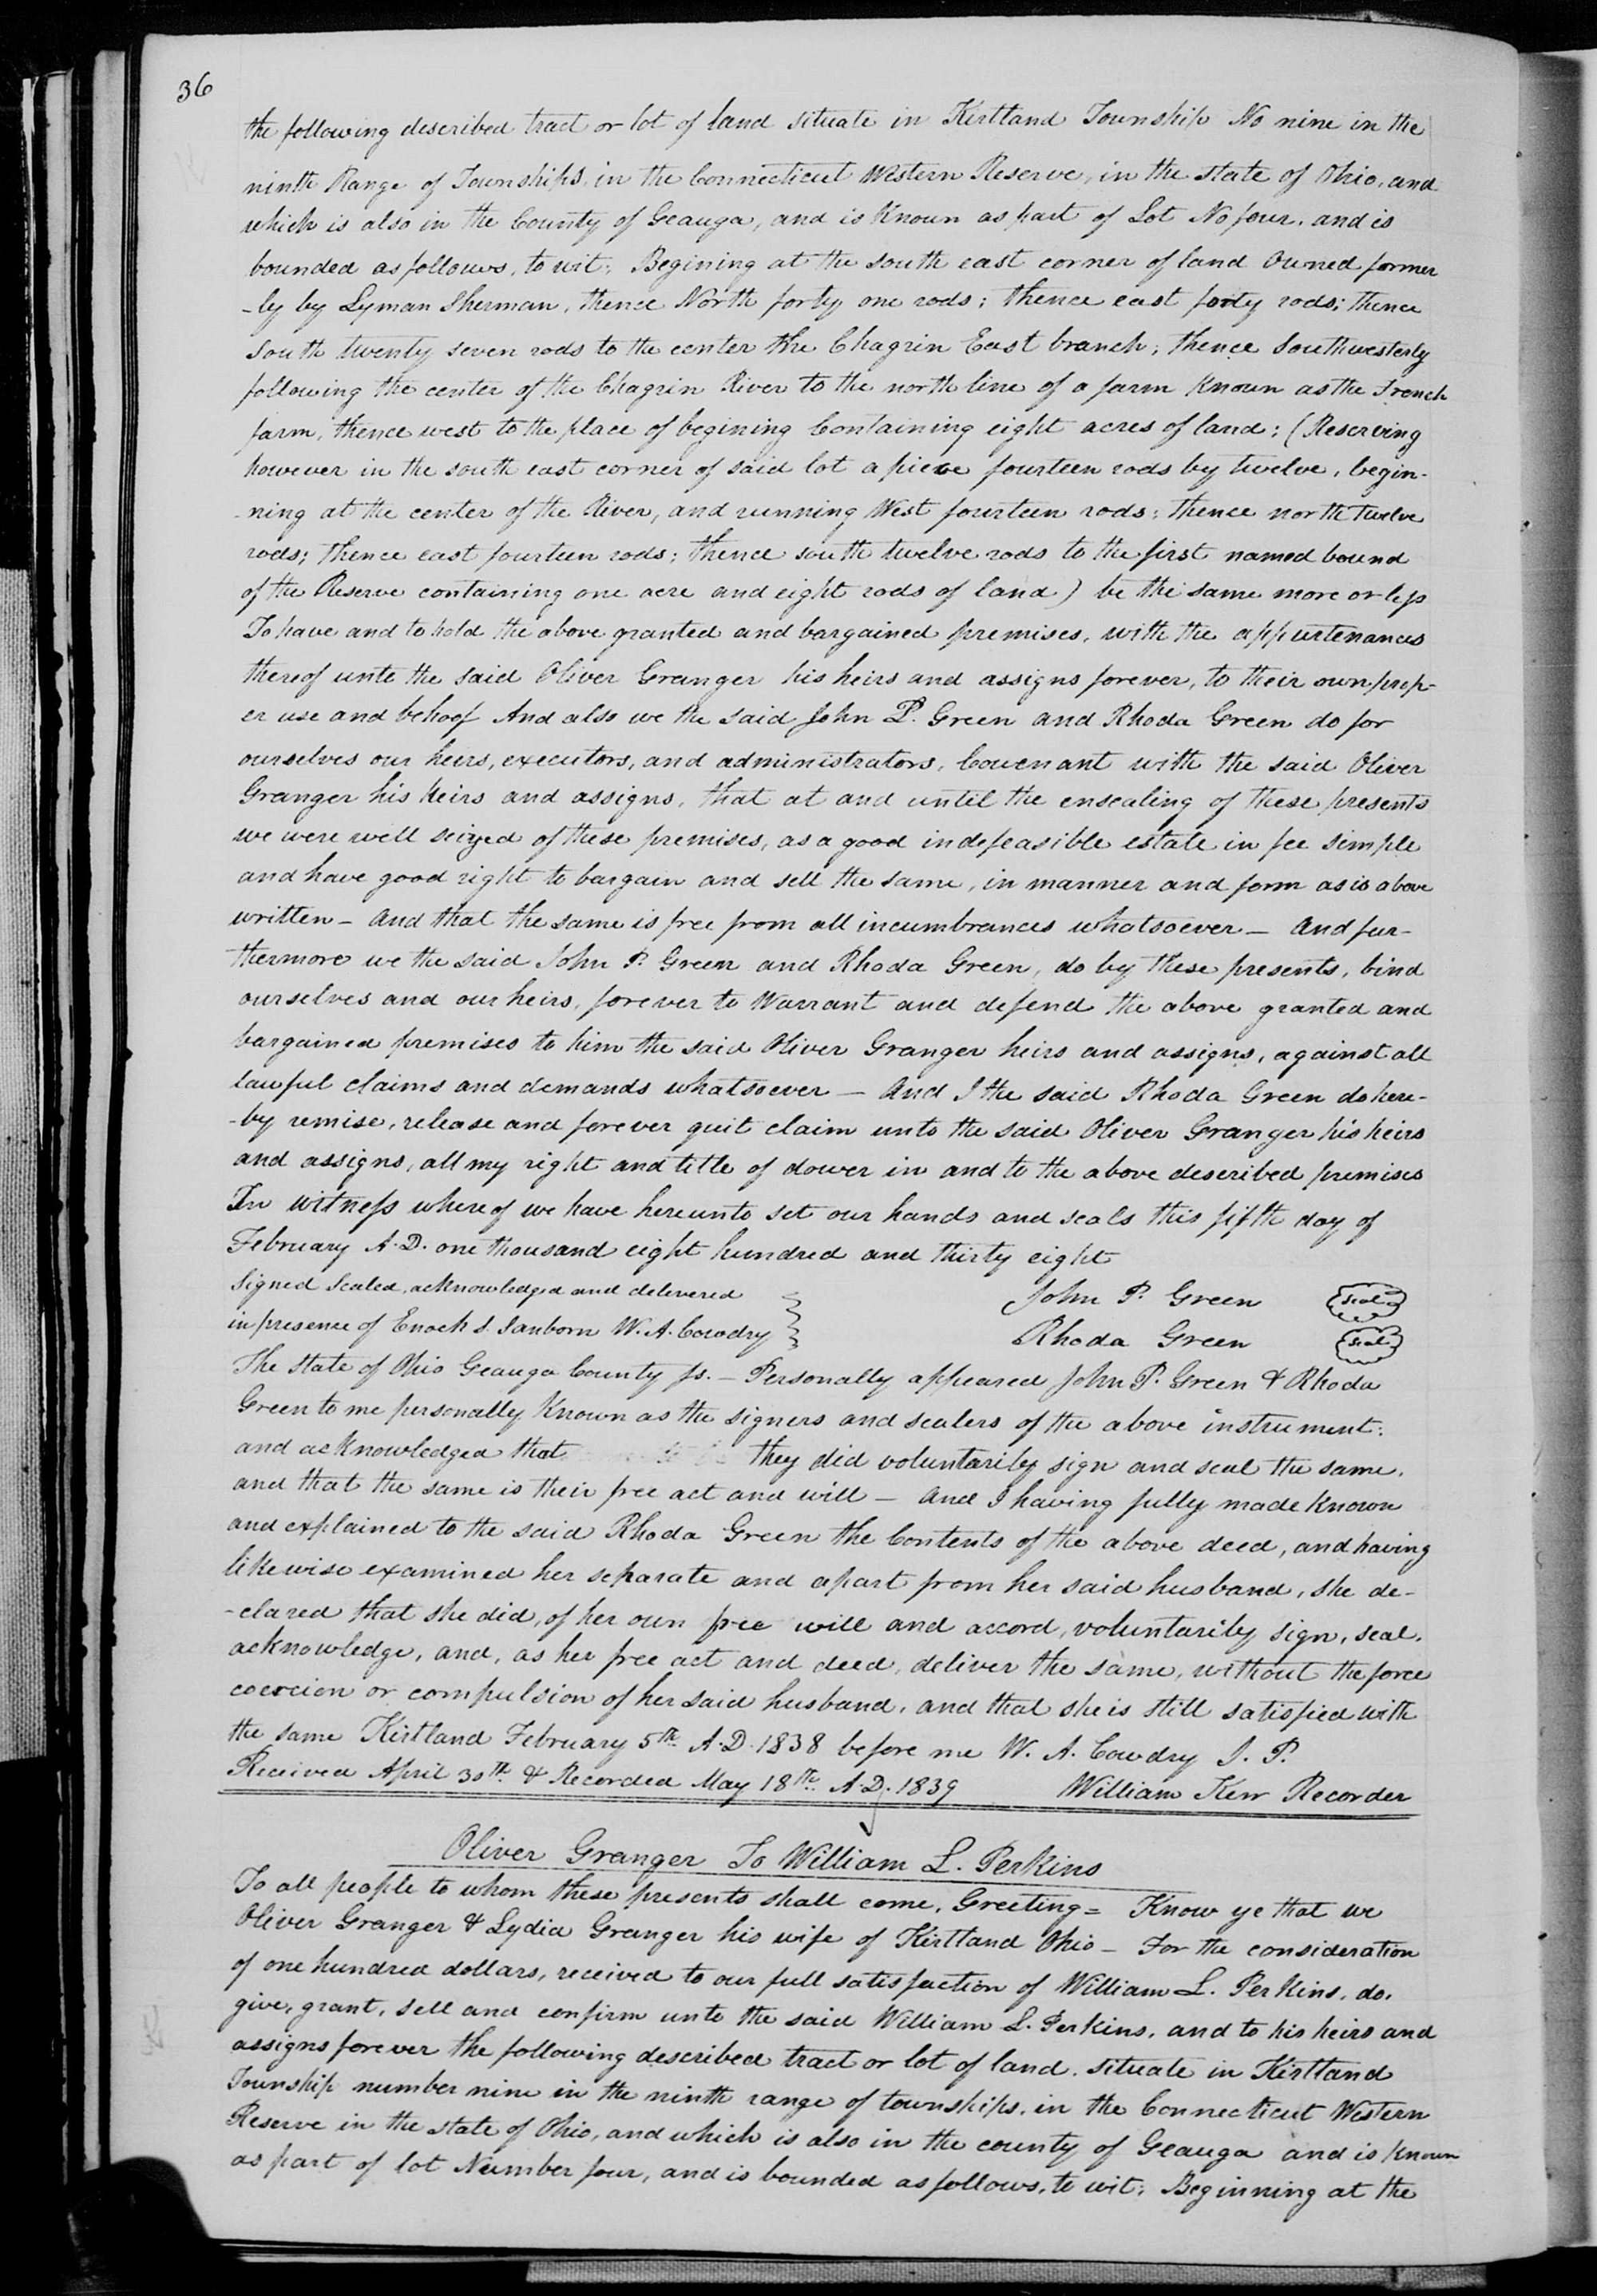 36
the following described tract or lot of land situate in Kirtland Township No nine in the
ninth Range of Townships, in the Connecticut Western Reserve, in the State of Ohio, and
which is also in the County of Geauga, and is Known as part of Lot No four. and is
bounded as follows, to wit; Begining at the south east corner of land Owned former
-ly by Lyman Sherman, thence North forty one rods; thence east forty rods; thence
South twenty seven rods to the center the Chagrin East branch; thence Southwesterly
following the center of the Chagrin River to the north line of a farm Known as the French
farm, thence west to the place of begining Containing eight acres of land; (Reserving
however in the south east corner of said lot a piece fourteen rods by twelve, begin-
-ning at the center of the River, and running West fourteen rods; thence north twelve
rods; thence east fourteen rods; thence south twelve rods to the first named bound
of the Reserve containing one acre and eight rods of land) be the same more or less
To have and to hold the above granted and bargained premises, with the appurtenances
thereof unto the said Oliver Granger his heirs and assigns forever, to their own prop-
er use and behoof And also we the said John P. Green and Rhoda Green do for
ourselves our heirs, executors, and administrators, Covenant with the said Oliver
Granger his heirs and assigns, that at and until the ensealing of these presents
we were well seized of these premises, as a good indefeasible estate in fee simple
and have good right to bargain and sell the same, in manner and form as is above
written - and that the same is free from all incumbrances whatsoever - And fur-
thermore we the said John P. Green and Rhoda Green, do by these presents, bind
ourselves and our heirs, forever to Warrant and defend the above granted and
bargained premises to him the said Oliver Granger heirs and assigns, against all
lawful claims and demands whatsoever - And I the said Rhoda Green do here-
-by remise, release and forever quit claim unto the said Oliver Granger his heirs
and assigns, all my right and title of dower in and to the above described premises
In witness whereof we have hereunto set our hands and seals this fifth day of
February A.D. one thousand eight hundred and thirty eight
Signed Sealed, acknowledged and delivered John P. Green seal
in presence of Enoch S. Sanborn W. A. Cowdry Rhoda Green seal
The State of Ohio Geauga County ss. - Personally appeared John P. Green & Rhoda
Green to me personally Known as the signers and sealers of the above instrument;
and acknowledged that they did voluntarily sign and seal the same,
and that the same is their free act and will - And I having fully made Known
and explained to the said Rhoda Green the Contents of the above deed, and having
likewise examined her separate and apart from her said husband, she de-
-clared that she did, of her own free will and accord, voluntarily sign, seal,
acknowledge, and, as her free act and deed, deliver the same, without the force
coercion or compulsion of her said husband, and that she is still satisfied with
the same Kirtland February 5th A.D. 1838 before me W. A. Cowdry J. P.
Received April 30th & Recorded May 18th A.D. 1839 William Kerr Recorder
Oliver Granger To William L. Perkins
To all people to whom these presents shall come, Greeting = Know ye that we
Oliver Granger & Lydia Granger his wife of Kirtland Ohio - For the consideration
of one hundred dollars, received to our full satisfaction of William L. Perkins, do,
give, grant, sell and confirm unto the said William L. Perkins, and to his heirs and
assigns forever the following described tract or lot of land. situate in Kirtland
Township number nine in the ninth range of townships, in the Connecticut Western
Reserve in the state of Ohio, and which is also in the county of Geauga and is known
as part of lot Number four, and is bounded as follows, to wit; Beginning at the